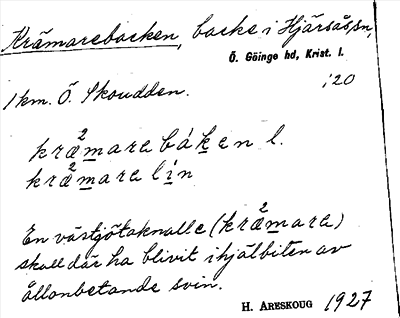 Krämarebacken, backe i Hjärsås sn,
Ö. Göinge hd, Krist. l.
1 km. Ö. Skoudden.
:20
kræ²marebákен l.
kræ²marelin
En västgötaknalle (kræ²mare)
skall där ha blivit ihjälbiten av
ållonbetande svin.
H. ARESKOUG 1927